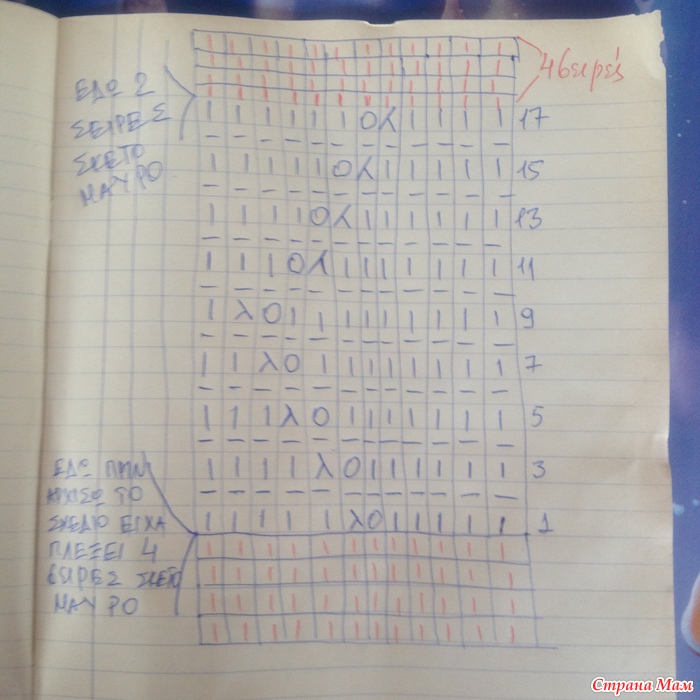 4 σειρές
ΕΔΩ 2
ΣΕΙΡΕΣ
ΣΚΕΤΟ
ΜΑΥΡΟ
I I I I I I O λ I I I I 17
I I I I I O λ I I I I I 15
I I I I O λ I I I I I I 13
I I I O λ I I I I I I I 11
I λ O I I I I I I I I I 9
I I λ O I I I I I I I I 7
I I I λ O I I I I I I I 5
I I I I λ O I I I I I I 3
I I I I I λ O I I I I I 1
ΕΔΩ ΠΡΙΝ
ΑΡΧΙΣΩ ΤΟ
ΣΧΕΔΙΟ ΕΙΧΑ
ΠΛΕΞΕΙ 4
ΣΕΙΡΕΣ ΣΚΕΤΟ
ΜΑΥΡΟ
Страна Мам